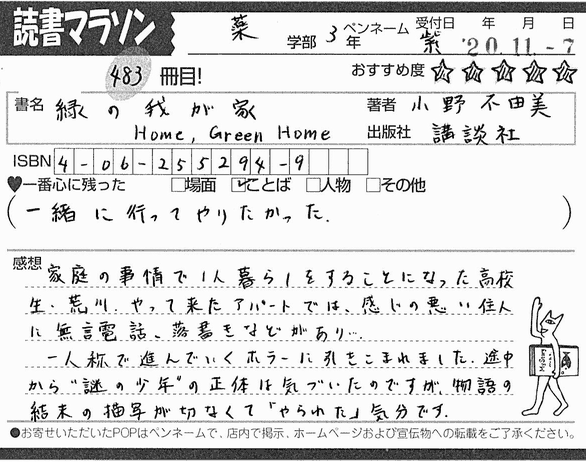 読書マラソン 薬 学部 3 年 ペンネーム 紫 受付日 年 月 日 '20.11.-7
483 冊目! おすすめ度 ☆☆☆☆☆
書名 緑の我が家 著者 小野不由美
Home, Green Home 出版社 講談社
ISBN 4-06-255294-9
♥一番心に残った □場面 ☑ことば □人物 □その他
(一緒に行ってやりたかった.)
感想 家庭の事情で1人暮らしをすることになった高校
生・荒川。やって来たアパートでは、感じの悪い住人
に無言電話、落書きなどがあり…
一人称で進んでいくホラーに引きこまれました.途中
から"謎の少年"の正体は気づいたのですが、物語の
結末の描写が切なくて「やられた」気分です.
●お寄せいただいたPOPはペンネームで、店内で掲示、ホームページおよび宣伝物への転載をご了承ください。